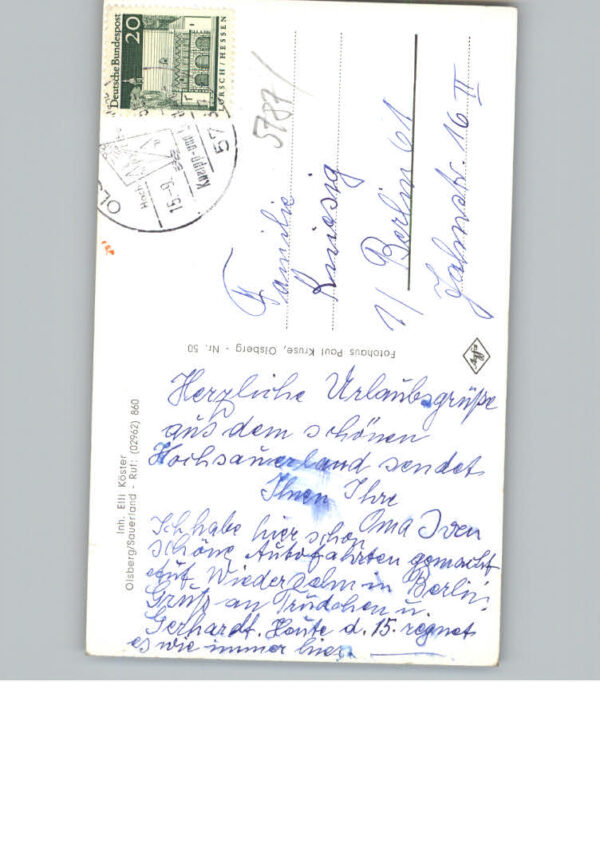 Deutsche Bundespost
20
LORSCH / HESSEN
OLS
57
15.-9.
5787/
Familie
1/ Berlin 61
Jahnstr. 16 II
Fotohaus Paul Kruse, Olsberg - Nr. 50
Agfa
Inh. Elli Köster
Olsberg/Sauerland - Ruf: (02962) 860
Herzliche Urlaubsgrüße
aus dem schönen
Hochsauerland sendet
Ihnen Ihre
Oma Iven
Ich habe hier schon
schöne Autofahrten gemacht
auf Wiedersehn in Berlin.
Gruß an Trudchen u.
Gerhardt. Heute d. 15. regnet
es wie immer hier.